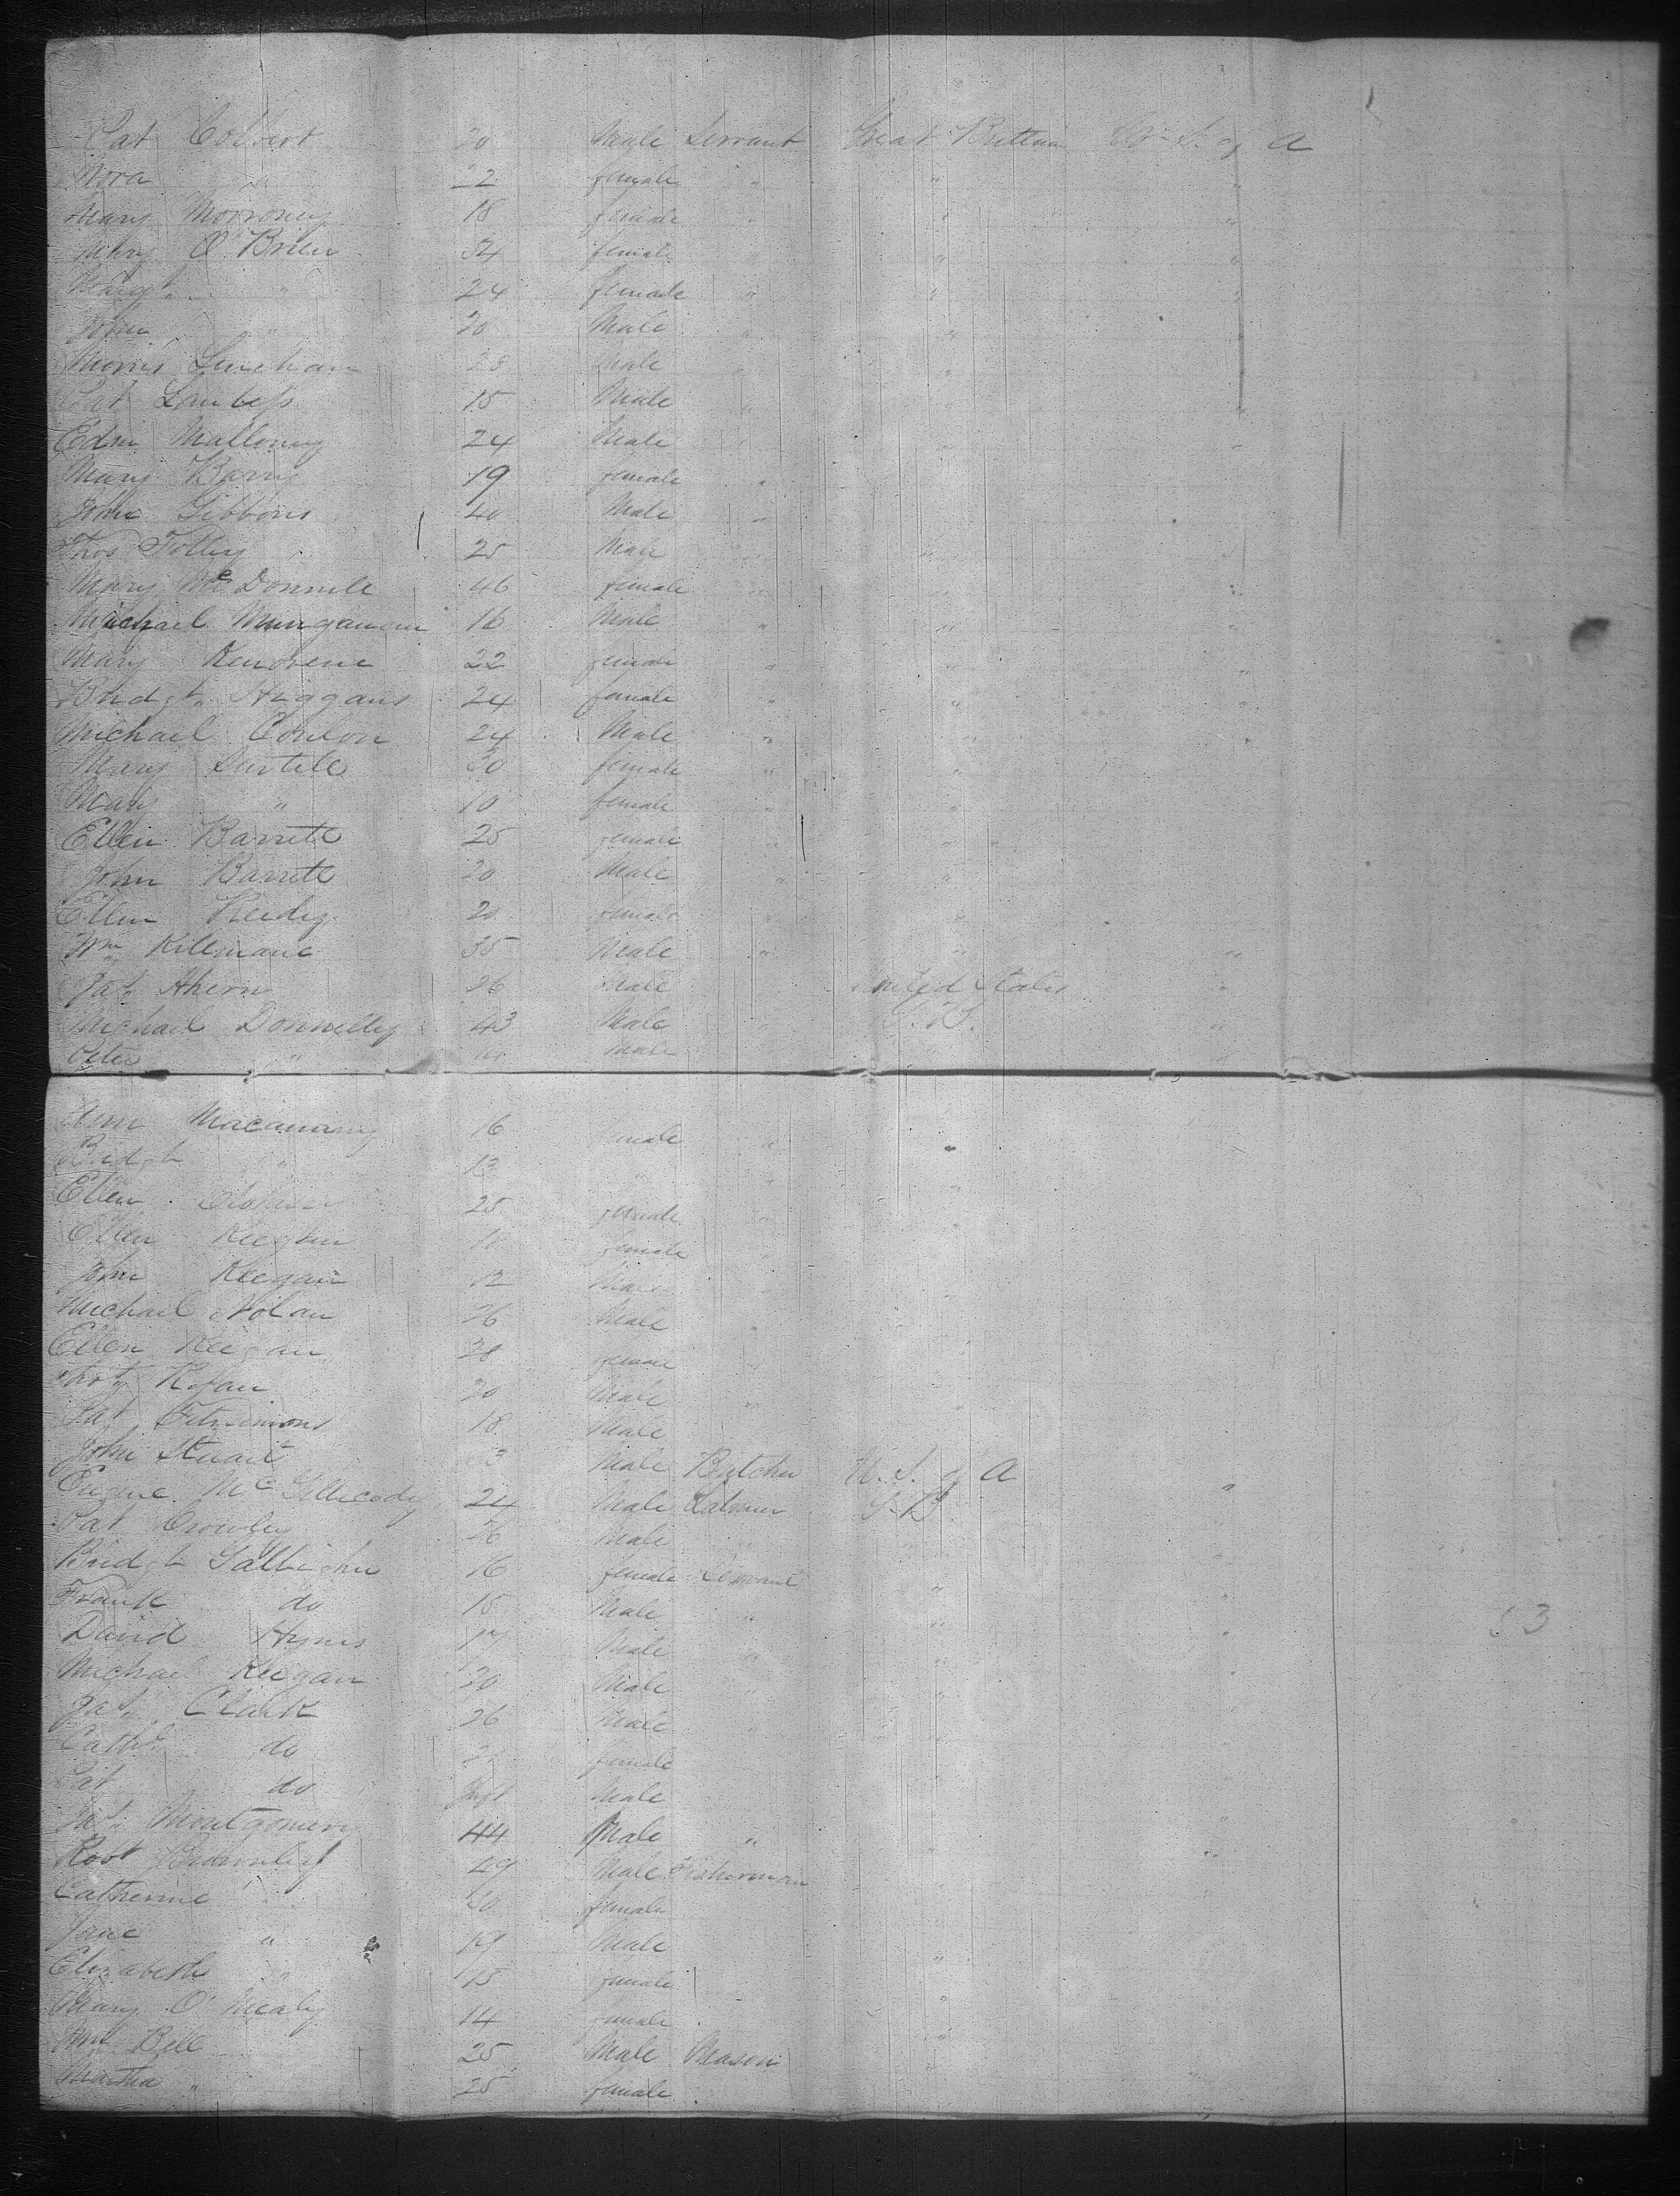 Pat Colbert 20 Male Servant Great Brittain U. S. of A
Nora " 22 female " " "
Mary Morroney 18 female " " "
Mary O'Brien 54 female " " "
Margt " 24 female " " "
John " 20 Male " " "
Morris Linehan 28 Male " "
Pat 15 Male " "
Edm Malloney 24 Male " "
Mary Barry 19 female "
John Gibbons 40 Male "
Thos Tolley 25 Male " "
Mary McDonnele 46 female " "
Michael 16 Male " " "
Mary 22 female " " "
Bridgt Higgans 24 female " " "
Michael Conlon 24 Male " " "
Mary 30 female " "
Mary " 10 female " "
Ellen Barrett 25 female " "
John Barrett 20 Male " "
Ellen Reidy 20 female " "
Wm Killmane 35 Male " " "
Jas Ahern 26 Male United States "
Michael Donnelly 43 Male G. B. "
Peter " Male " "
Ann Macanany 16 female "
Bridgt " 13 " " "
Ellen 25 female "
Ellen Keegan 11 female "
John Keegan 12 Male "
Michael Nolan 26 Male "
Ellen Keegan 28 female "
20 Male "
Pat Fitzsimons 18 Male
John Stuart Male Butcher U. S. of A "
Eugene McGillicody 24 Male G. B.
Pat Crowley 26 Male " " "
Bridgt Galligher 16 female Servant " "
Frank do 15 Male " " "
David Hynes 17 Male " "
Michael Keegan 20 Male " " "
Jas Clark 26 Male "
Cath do female "
Pat do Male "
Jas Montgomery 44 Male " " "
Robt 49 Male Fisherman " "
Catherine " 20 female "
Jane " 19 Male "
Elizabeth " 15 female "
Mary O'Mealy 14 female "
Wm Bell 25 Male Mason "
Martha " 25 female